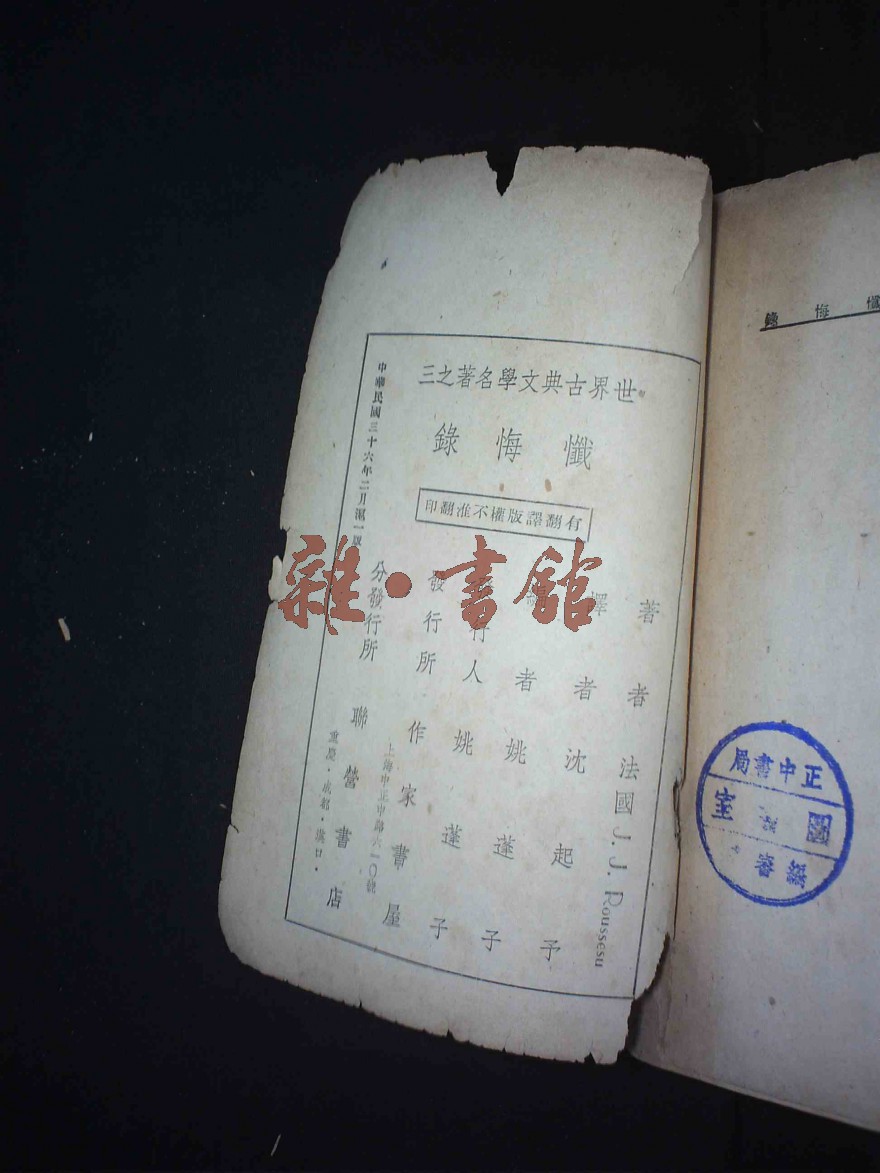 世界古典文學名著之三
懺悔錄
有翻譯版權不准翻印
著者 法國 J. J. Roussesu
譯者 沈起予
者 姚蓬子
發行人 姚蓬子
發行所 作家書屋
上海中正中路六一〇號
分發行所 聯營書店
重慶·成都·漢口·
中華民國三十六年二月滬一版
懺悔錄
正中書局
圖
室
編審
雜·書館